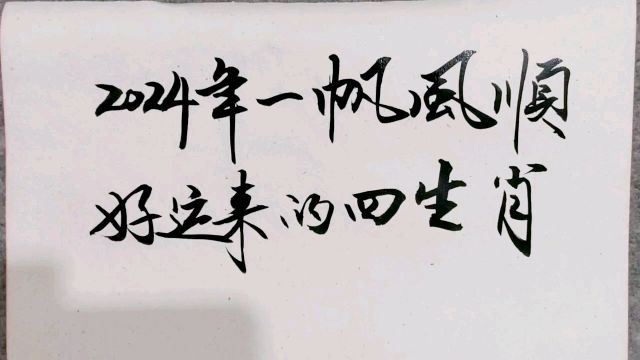 2024年一帆風順
好运来的四生肖